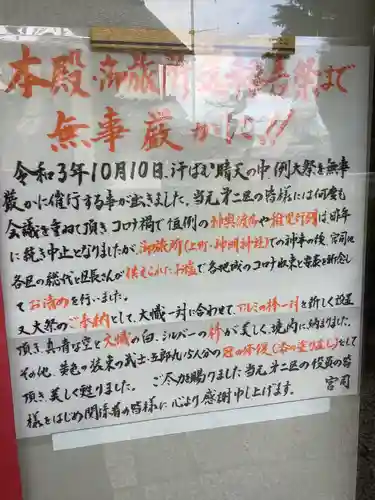 本殿・御旅所 祭まで
無事厳かに!!
令和3年10月10日、汗ばむ晴天の中 例大祭を無事
厳かに催行する事が出来ました。当元第二区の皆様には何度も
会議を重ねて頂き コロナ禍で恒例の神輿渡御や稚児行列は昨年
に続き中止となりましたが、御旅所(上町・神明神社)での神事の後 宮司他
各区の総代と区長さんが供えられたお塩で各地域のコロナ収束と安泰を祈念し
てお清めを行いました。
又大祭のご奉納として、大幟一対に合わせて、アルミの棒一対を新しく設置
頂き、真青な空と大幟の白、シルバーの杆が美しく、境内に納まりました。
その他、
頂き、美しく甦りました。 ご尽力を賜りました当元第二区の役員の皆
様をはじめ関係者の皆様に心より感謝申し上げます。 宮司